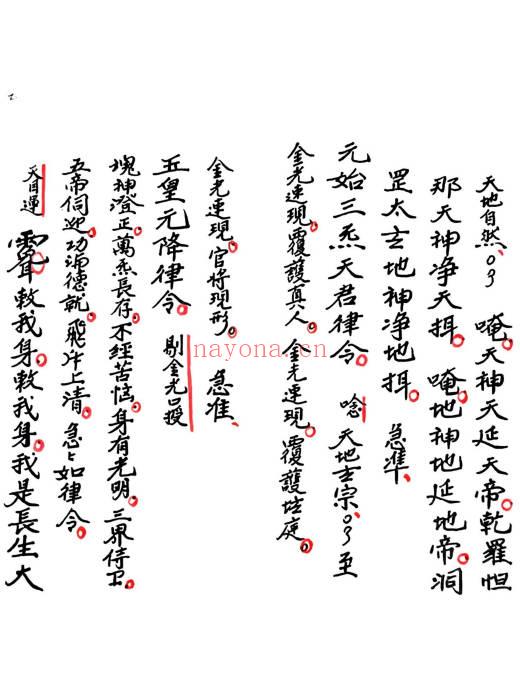 天地自然、唵。天神天延天帝。乾羅怛
那天神净天揖。唵。地神地延地帝。洞
罡太玄地神净地揖。急準、
元始三炁天君律令。唸、天地玄宗、至
金光速現。覆護真人。金光速現。覆護坛庭。
金光速現。官将現形。急准、
五皇元降律令。剔金光口授
塊神澄正。萬炁長存。不經苦恼。身有光明。三界侍卫。
五帝伺迎。功满德就。飛升上清。急々如律令。
天目運 敕我身。敕我身。我是長生大
nayona.cn